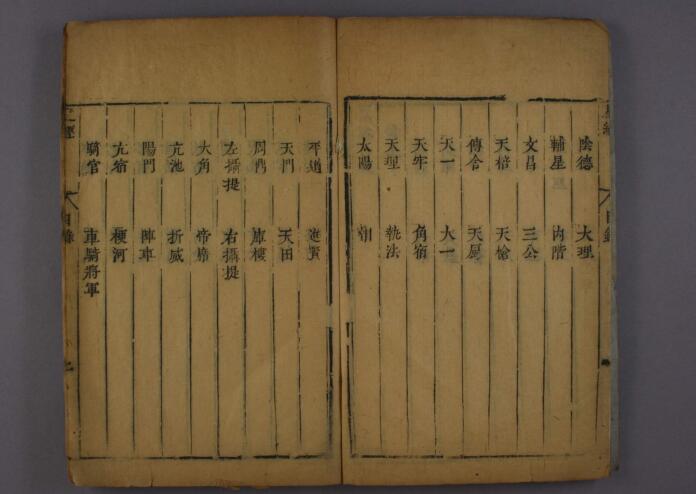 星經 目錄
陰德 大理
輔星 內階
文昌 三公
天棓 天槍
傳舍 天厨
天一 大一
天牢 角宿
天理 執法
太陽 相
平道 進賢
天門 天田
周鼎 庫樓
左攝提 右攝提
大角 帝席
亢池 折威
陽門 陣車
亢宿 梗河
騎官 車騎將軍
星經 目錄